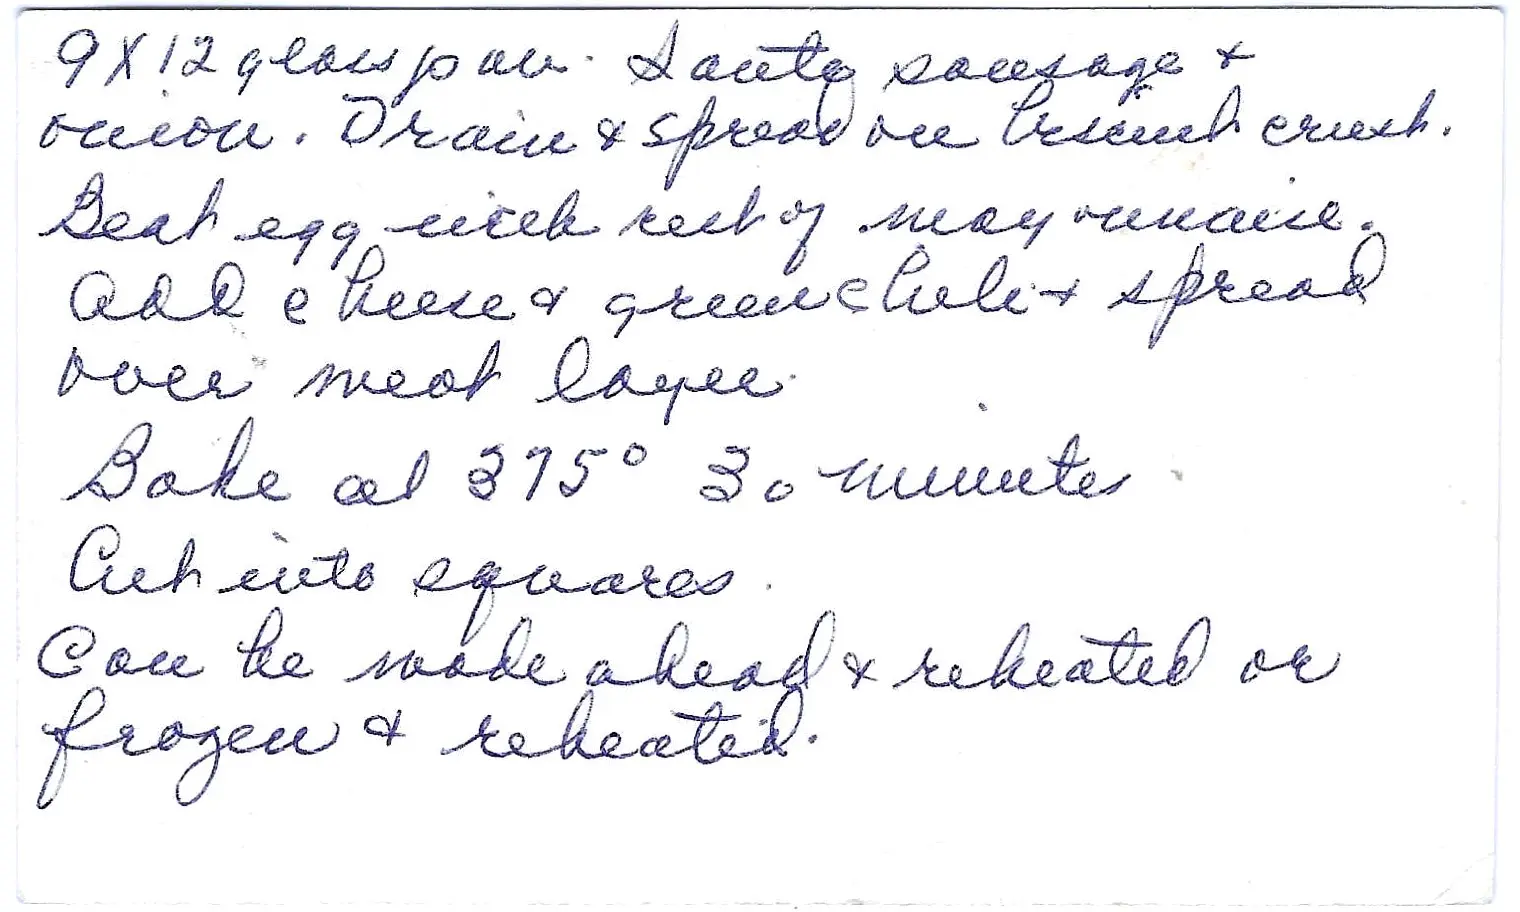 9X12 glass pan. Saute sausage &
onion. Drain & spread on biscuit crust.
Beat egg with rest of mayonnaise.
Add cheese & green chili & spread
over meat layer.
Bake at 375° 30 minutes
Cut into squares.
Can be made ahead & reheated or
frozen & reheated.